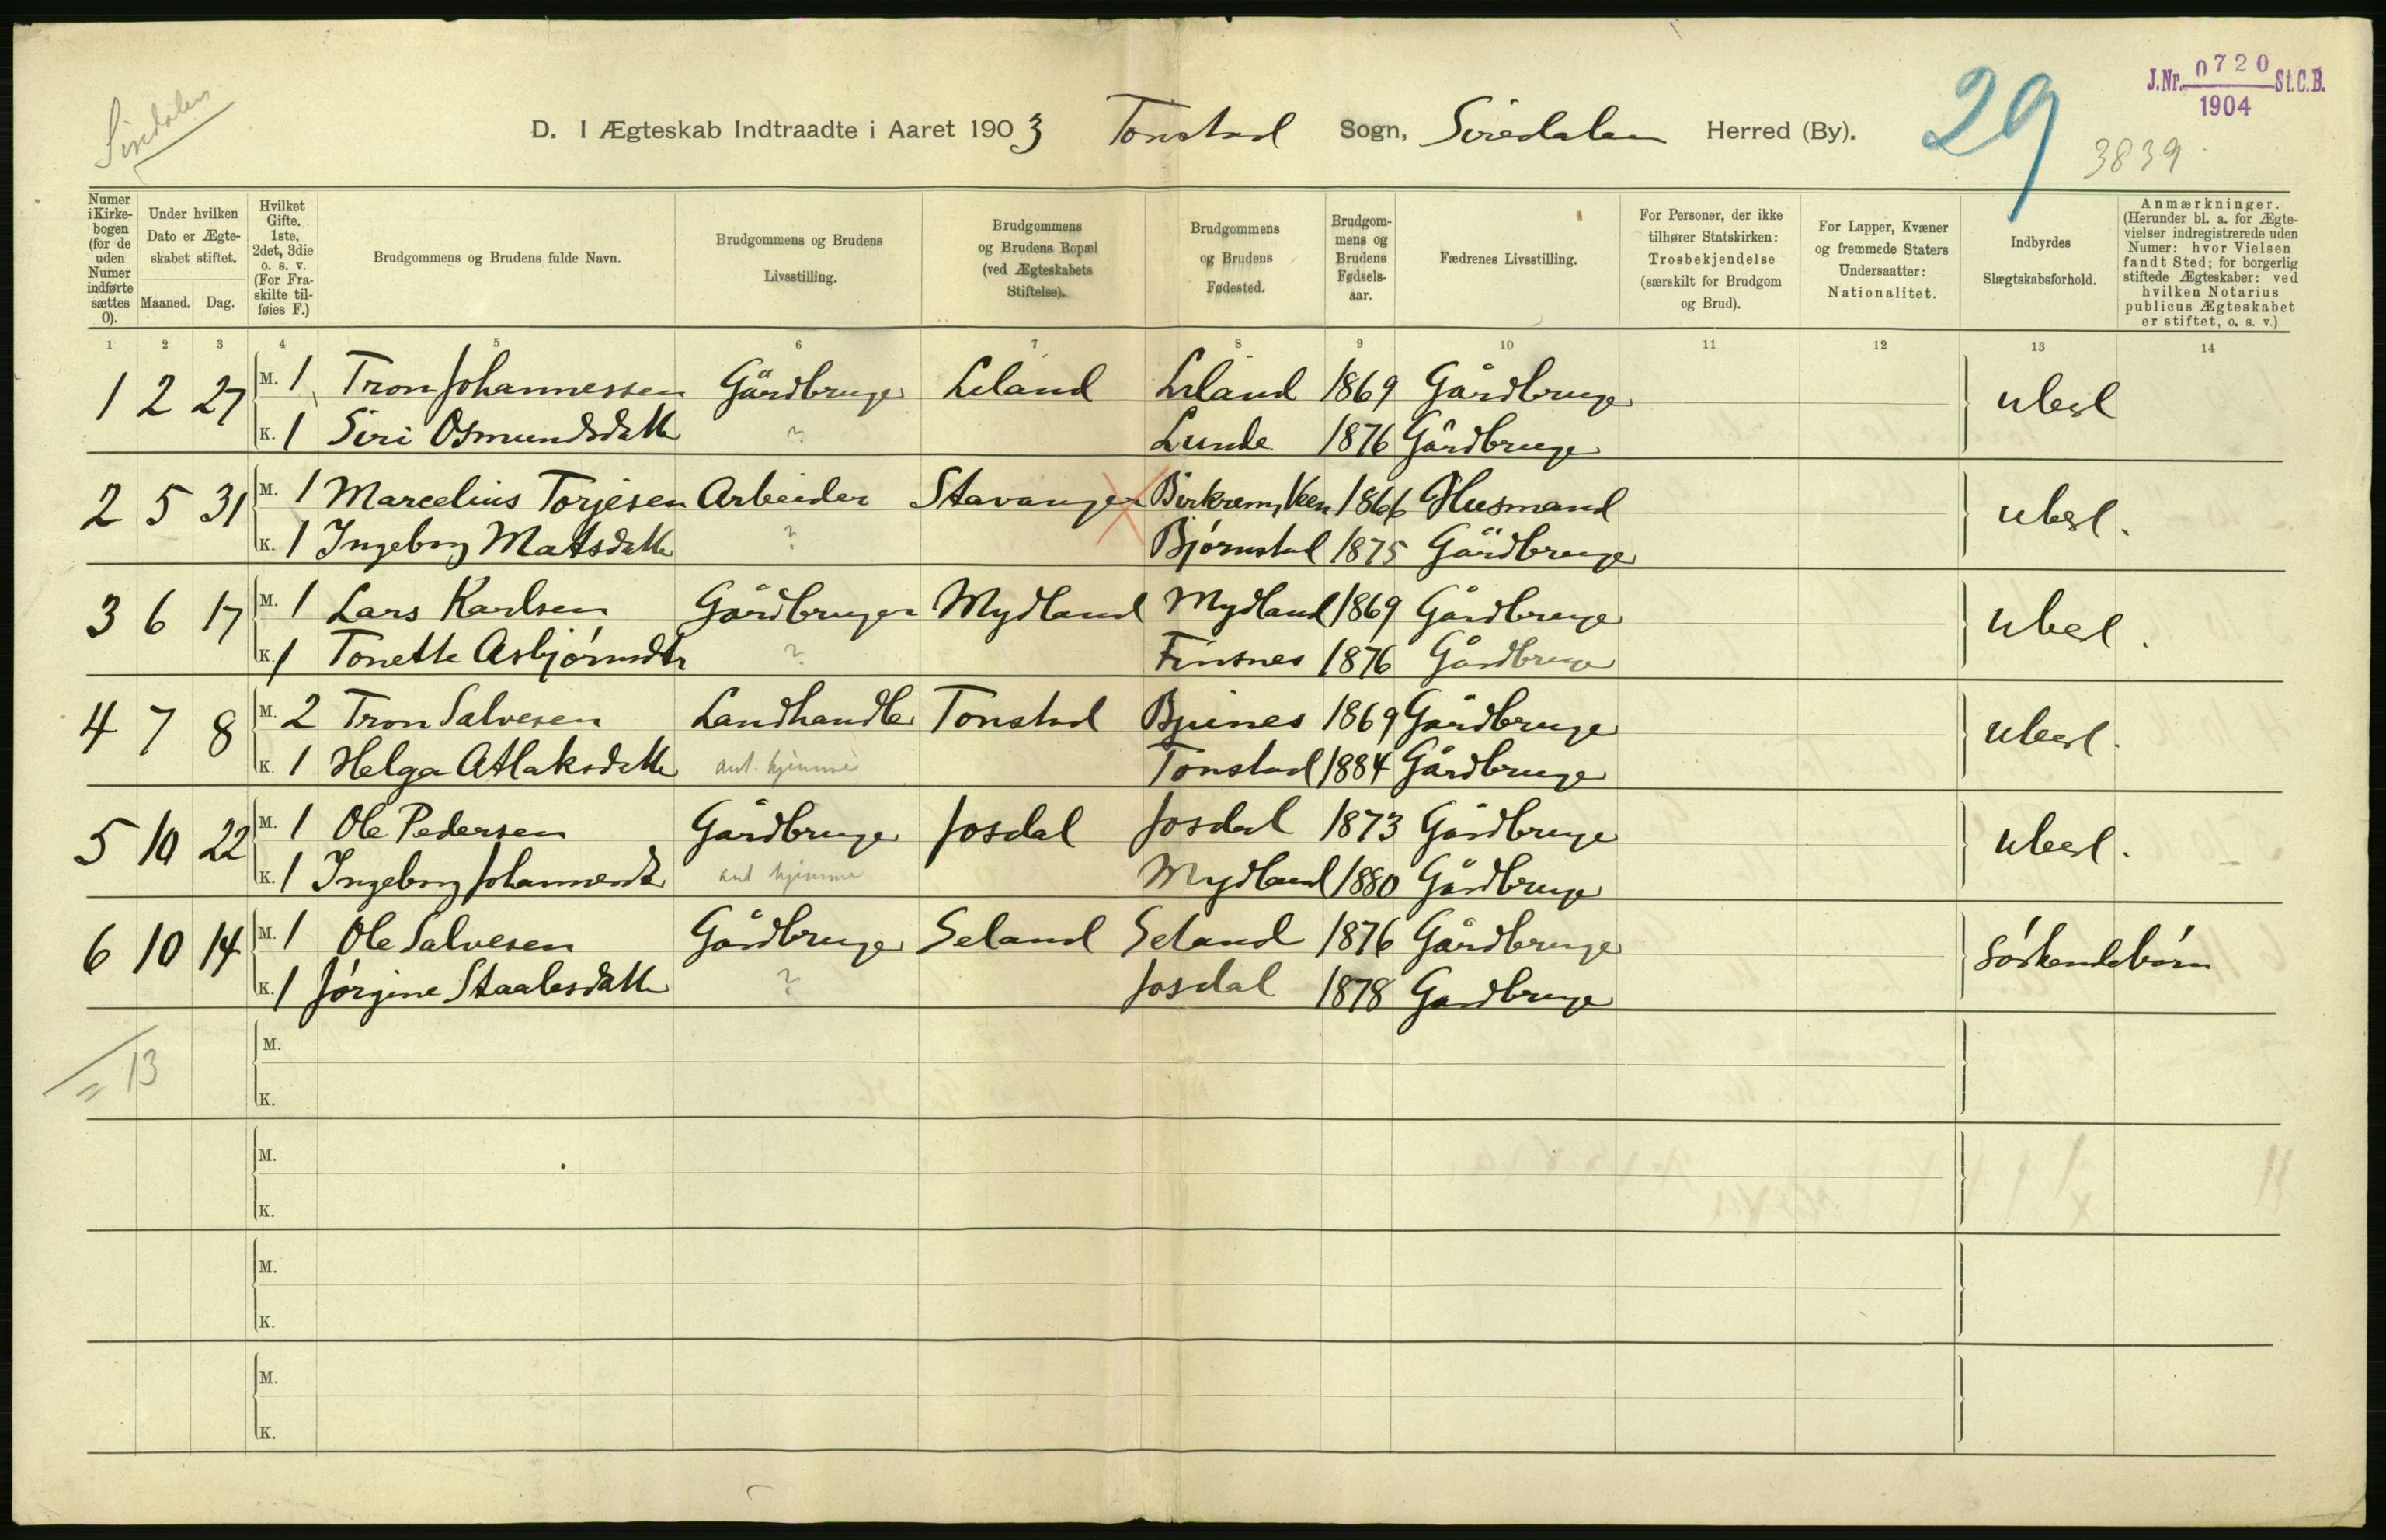 Siredalen
D. I Ægteskab Indtraadte i Aaret 1903 Tonstad Sogn, Siredalen Herred (By).
29
J.Nr. 0720 St.C.B.
1904
3839
Numer i Kirke- bogen (for de uden Numer indførte sættes 0).
Under hvilken Dato er Ægte- skabet stiftet.
Maaned. Dag.
Hvilket Gifte. 1ste, 2det, 3die o. s. v. (For Fra- skilte til- føies F.)
Brudgommens og Brudens fulde Navn.
Brudgommens og Brudens Livsstilling.
Brudgommens og Brudens Bopæl (ved Ægteskabets Stiftelse).
Brudgommens og Brudens Fødested.
Brudgom- mens og Brudens Fødsels- aar.
Fædrenes Livsstilling.
For Personer, der ikke tilhører Statskirken: Trosbekjendelse (særskilt for Brudgom og Brud).
For Lapper, Kvæner og fremmede Staters Undersaatter: Nationalitet.
Indbyrdes Slægtskabsforhold.
Anmærkninger. (Herunder bl. a. for Ægte- vielser indregistrerede uden Numer: hvor Vielsen fandt Sted; for borgerlig stiftede Ægteskaber: ved hvilken Notarius publicus Ægteskabet er stiftet, o. s. v.)
1 2 3 4 5 6 7 8 9 10 11 12 13 14
1 2 27 M. 1 Tron Johannessen Gårdbruger Leland Leland 1869 Gårdbruger ubesl
K. 1 Siri Osmundsdatter ? Lunde 1876 Gårdbruger
2 5 31 M. 1 Marcelius Torjesen Arbeider Stavanger Birkrem, Veen 1866 Husmand ubesl.
K. 1 Ingeborg Matsdatter ? Bjørnstad 1875 Gårdbruger
3 6 17 M. 1 Lars Karlsen Gårdbruger Mydland Mydland 1869 Gårdbruger ubesl.
K. 1 Tonette Asbjørnsdtr ? Finsnes 1876 Gårdbruger
4 7 8 M. 2 Tron Salvesen Landhandler Tonstad Bjunes 1869 Gårdbruger ubesl.
K. 1 Helga Atlaksdatter ant. hjemme Tonstad 1884 Gårdbruger
5 10 22 M. 1 Ole Pedersen Gårdbruger Josdal Josdal 1873 Gårdbruger ubesl.
K. 1 Ingeborg Johannesdt ant hjemme Mydland 1880 Gårdbruger
6 10 14 M. 1 Ole Salvesen Gårdbruger Seland Seland 1876 Gårdbruger Søskendebørn
K. 1 Jørgine Staalesdatter ? Josdal 1878 Gardbruger
= 13
M.
K.
M.
K.
M.
K.
M.
K.